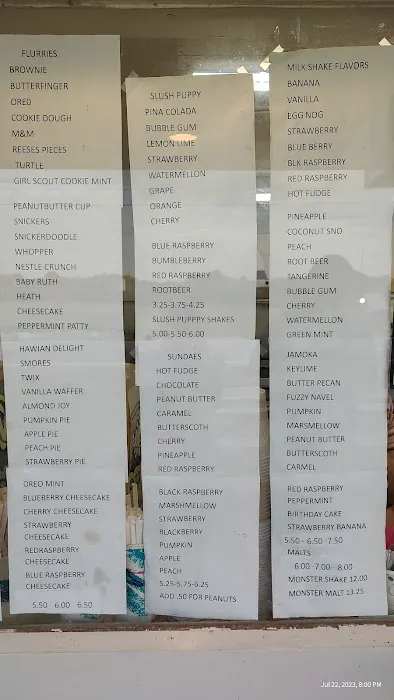 FLURRIES
BROWNIE
BUTTERFINGER
OREO
COOKIE DOUGH
M&M
REESES PIECES
TURTLE
GIRL SCOUT COOKIE MINT
PEANUTBUTTER CUP
SNICKERS
SNICKERDOODLE
WHOPPER
NESTLE CRUNCH
BABY RUTH
HEATH
CHEESECAKE
PEPPERMINT PATTY
HAWIAN DELIGHT
SMORES
TWIX
VANILLA WAFFER
ALMOND JOY
PUMPKIN PIE
APPLE PIE
PEACH PIE
STRAWBERRY PIE
OREO MINT
BLUEBERRY CHEESECAKE
CHERRY CHEESECAKE
STRAWBERRY
CHEESECAKE
REDRASPBERRY
CHEESECAKE
BLUE RASPBERRY
CHEESECAKE
5.50 6.00 6.50
SLUSH PUPPY
PINA COLADA
BUBBLE GUM
LEMON LIME
STRAWBERRY
WATERMELLON
GRAPE
ORANGE
CHERRY
BLUE RASPBERRY
BUMBLEBERRY
RED RASPBERRY
ROOTBEER
3.25-3.75-4.25
SLUSH PUPPPY SHAKES
5.00-5.50-6.00
SUNDAES
HOT FUDGE
CHOCOLATE
PEANUT BUTTER
CARAMEL
BUTTERSCOTH
CHERRY
PINEAPPLE
RED RASPBERRY
BLACK RASPBERRY
MARSHMELLOW
STRAWBERRY
BLACKBERRY
PUMPKIN
APPLE
PEACH
5.25-5.75-6.25
ADD .50 FOR PEANUTS
MILK SHAKE FLAVORS
BANANA
VANILLA
EGG NOG
STRAWBERRY
BLUE BERRY
BLK RASPBERRY
RED RASPBERRY
HOT FUDGE
PINEAPPLE
COCONUT SNO
PEACH
ROOT BEER
TANGERINE
BUBBLE GUM
CHERRY
WATERMELLON
GREEN MINT
JAMOKA
KEYLIME
BUTTER PECAN
FUZZY NAVEL
PUMPKIN
MARSMELLOW
PEANUT BUTTER
BUTTERSCOTH
CARMEL
RED RASPBERRY
PEPPERMINT
BIRTHDAY CAKE
STRAWBERRY BANANA
5.50 - 6.50 7.50
MALTS
6.00- 7.00- 8.00
MONSTER SHAKE 12.00
MONSTER MALT 13.25
Jul 22, 2023, 8:00 PM